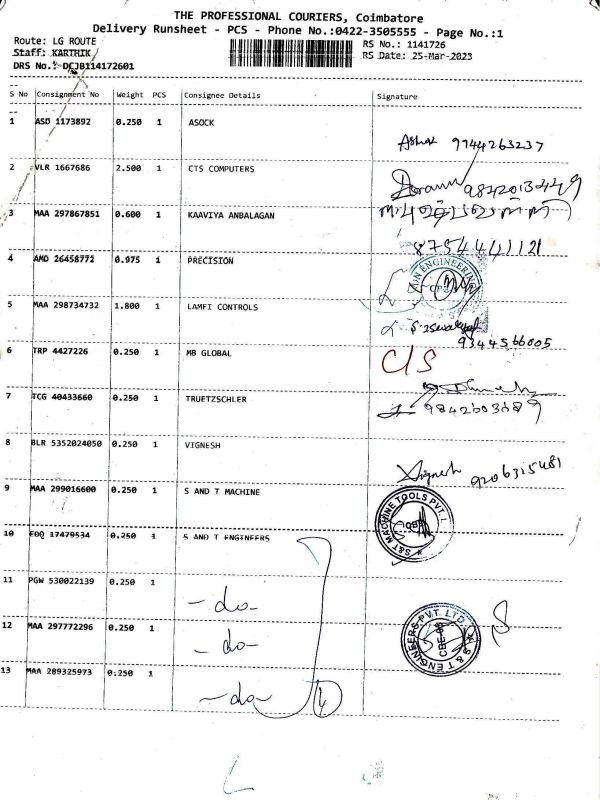 THE PROFESSIONAL COURIERS, Coimbatore
Delivery Runsheet - PCS - Phone No.:0422-3505555 - Page No.:1
Route: LG ROUTE
Staff: KARTHIK
DRS No.: DCJB114172601
RS No.: 1141726
RS Date: 25-Mar-2023
S No Consignment No Weight PCS Consignee Details Signature
1 ASD 1173892 0.250 1 ASOCK
Ashok 9744263237
2 VLR 1667686 2.500 1 CTS COMPUTERS
9842013449
3 MAA 297867851 0.600 1 KAAVIYA ANBALAGAN
8754441121
4 AMD 26458772 0.975 1 PRECISION
ENGINEERING
5 MAA 298734732 1.800 1 LAMFI CONTROLS
9344566005
6 TRP 4427226 0.250 1 MB GLOBAL
C/S
7 TCG 40433660 0.250 1 TRUETZSCHLER
9842603689
8 BLR 5352024050 0.250 1 VIGNESH
Vignesh 9206325481
9 MAA 299016600 0.250 1 S AND T MACHINE
S&T MACHINE TOOLS PVT.L
10 EDQ 17479534 0.250 1 S AND T ENGINEERS
11 PGW 530022139 0.250 1
-do-
12 MAA 297772296 0.250 1
-do-
S & T ENGINEERS PVT. LTD
13 MAA 289325973 0.250 1
-do-